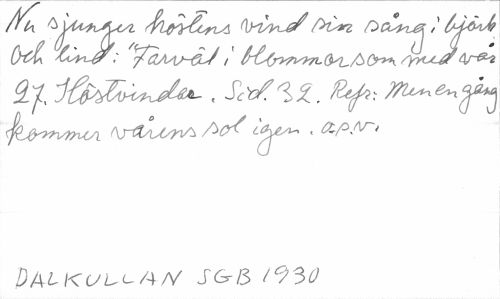 Nu sjunger höstens vind sin sång i björk
och lind: "Farväl i blommor som med vår
27. Höstvindar. Sid. 32. Refr: Men en gång
kommer vårens sol igen. o.s.v.
DALKULLAN SGB 1930